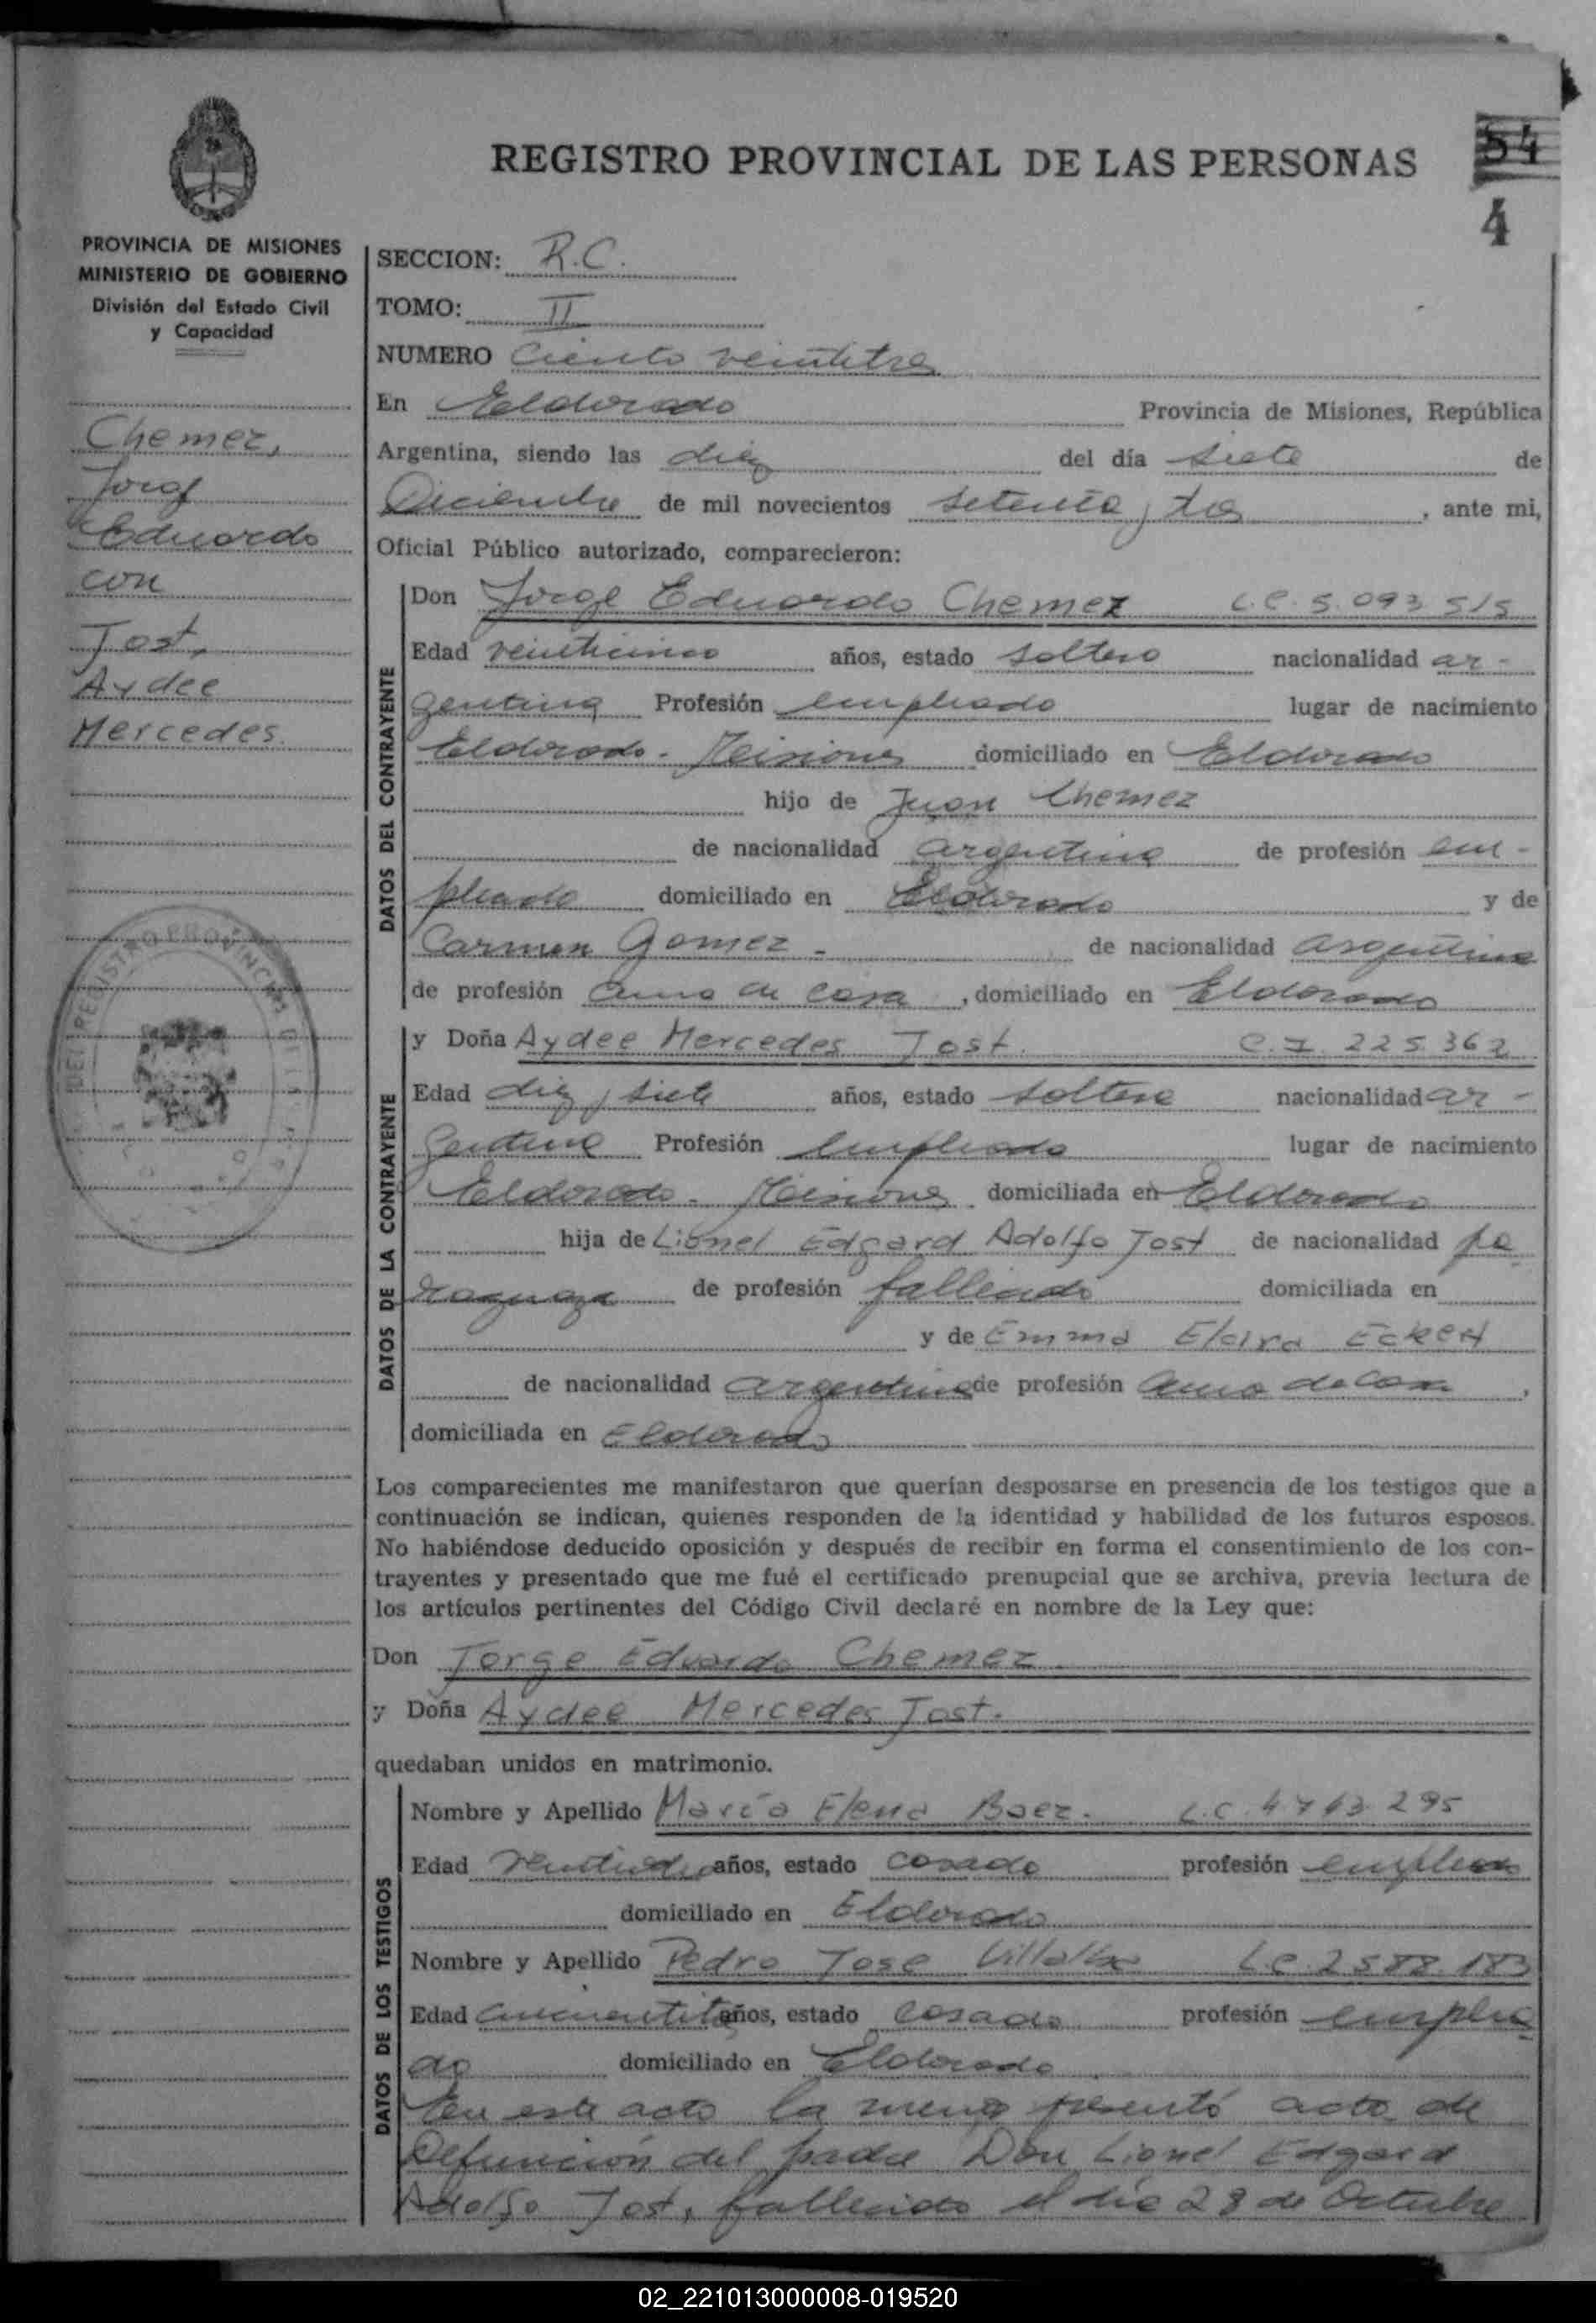 REGISTRO PROVINCIAL DE LAS PERSONAS
54
4
PROVINCIA DE MISIONES
MINISTERIO DE GOBIERNO
División del Estado Civil
y Capacidad
Chemez,
Jorge
Eduardo
con
Jost,
Aydee
Mercedes.
SECCION: R.C.
TOMO: II
NUMERO Ciento veintitres
En Eldorado Provincia de Misiones, República
Argentina, siendo las diez del día siete de
Diciembre de mil novecientos setenta y tres, ante mi,
Oficial Público autorizado, comparecieron:
DATOS DEL CONTRAYENTE
Don Jorge Eduardo Chemez L.E. 5.093.515
Edad veinticinco años, estado soltero nacionalidad ar-
gentina Profesión empleado lugar de nacimiento
Eldorado - Misiones domiciliado en Eldorado
hijo de Juan Chemez
de nacionalidad argentina de profesión em-
pleado domiciliado en Eldorado y de
Carmen Gomez - de nacionalidad argentina
de profesión ama de casa, domiciliado en Eldorado
DATOS DE LA CONTRAYENTE
y Doña Aydee Mercedes Jost. C.I. 225.362
Edad diez y siete años, estado soltera nacionalidad ar-
gentina Profesión empleada lugar de nacimiento
Eldorado - Misiones domiciliada en Eldorado
hija de Lionel Edgard Adolfo Jost de nacionalidad pa
raguaya de profesión fallecido domiciliada en
y de Emma Eckert
de nacionalidad argentina de profesión ama de casa,
domiciliada en Eldorado
Los comparecientes me manifestaron que querían desposarse en presencia de los testigos que a
continuación se indican, quienes responden de la identidad y habilidad de los futuros esposos.
No habiéndose deducido oposición y después de recibir en forma el consentimiento de los con-
trayentes y presentado que me fué el certificado prenupcial que se archiva, previa lectura de
los artículos pertinentes del Código Civil declaré en nombre de la Ley que:
Don Jorge Eduardo Chemez
y Doña Aydee Mercedes Jost.
quedaban unidos en matrimonio.
DATOS DE LOS TESTIGOS
Nombre y Apellido María Elena Baez. L.C.
Edad años, estado casada profesión empleada
domiciliado en Eldorado
Nombre y Apellido Pedro Jose Villalba L.E. 2.588.183
Edad años, estado casado profesión emplea
do domiciliado en Eldorado
En este acto la menor presentó acta de
Defunción del padre Don Lionel Edgard
Adolfo Jost, fallecido el día 28 de Octubre
02_221013000008-019520